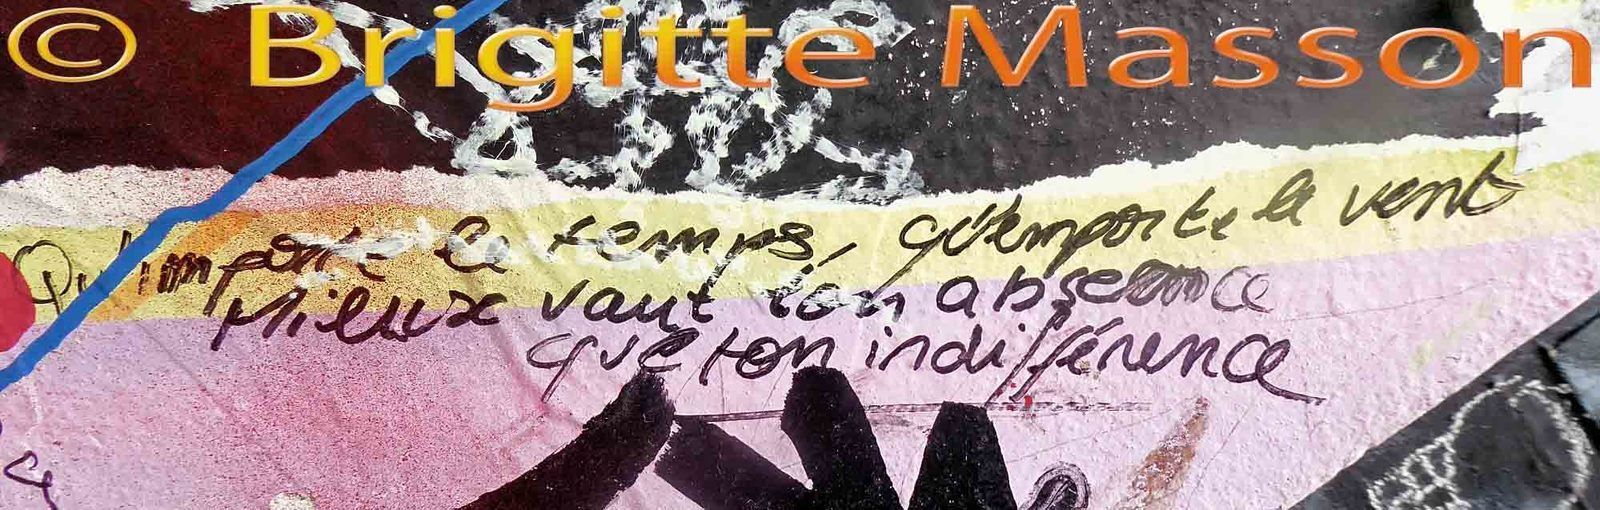 © Brigitte Masson
Qu'importe le temps, qu'emporte le vent
Mieux vaut ton absence
que ton indifférence